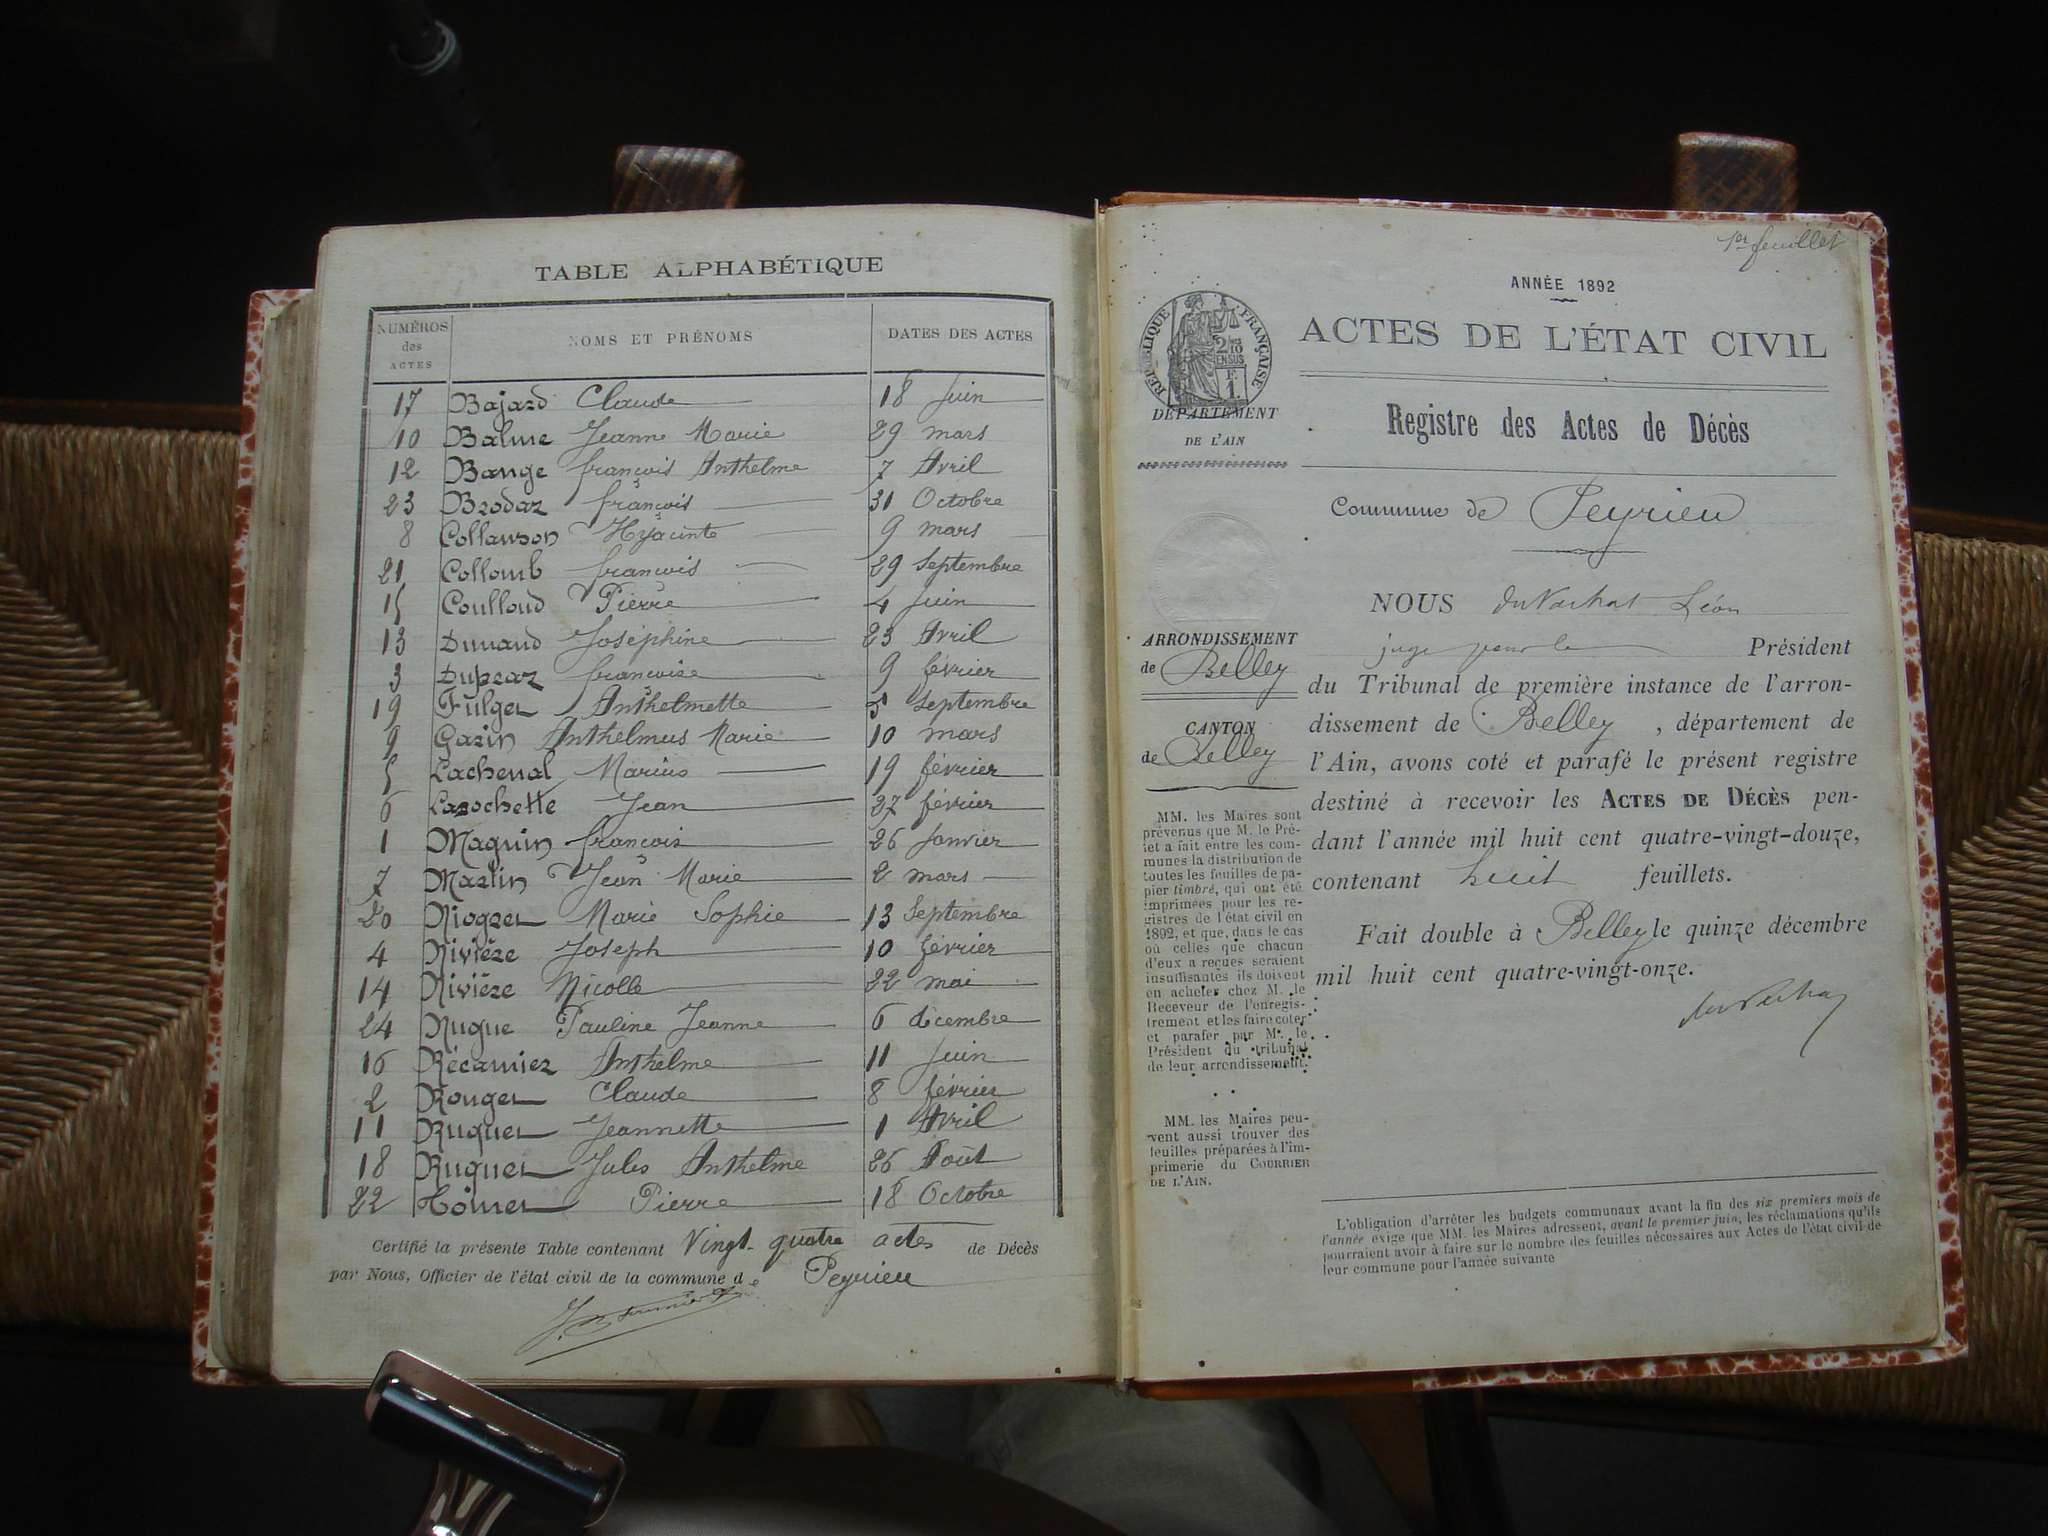 TABLE ALPHABÉTIQUE
NUMÉROS des ACTES NOMS ET PRÉNOMS DATES DES ACTES
17 Bajard Claude 18 Juin
10 Balme Jeanne Marie 29 mars
12 Bange françois Anthelme 7 Avril
23 Brodaz françois 31 Octobre
8 Collanson Hyacinte 9 mars
21 Collomb françois 29 Septembre
15 Coulloud Pierre 4 Juin
13 Dunand Joséphine 23 Avril
3 Dupraz françoise 9 février
19 Fulger Anthelmette 5 Septembre
9 Garin Anthelmus Marie 10 mars
5 Lachenal Marius 19 février
6 Larochette Jean 27 février
1 Maquin françois 26 Janvier
7 Martin Jean Marie 2 mars
20 Niogret Marie Sophie 13 Septembre
4 Rivière Joseph 10 février
14 Rivière Nicolle 22 mai
24 Nugue Pauline Jeanne 6 décembre
16 Récamier Anthelme 11 Juin
2 Rouger Claude 8 février
11 Ruguet Jeannette 1 Avril
18 Ruguet Jules Anthelme 26 Août
22 Pierre 18 Octobre
Certifié la présente Table contenant Vingt-quatre actes de Décès
par Nous, Officier de l'état civil de la commune de Peyrieu
1er feuillet
ANNÉE 1892
ACTES DE L'ÉTAT CIVIL
Registre des Actes de Décès
RÉPUBLIQUE FRANÇAISE
2/10 EN SUS
F. 1.
DÉPARTEMENT
DE L'AIN
Commune de Peyrieu
ARRONDISSEMENT
de Belley
CANTON
de Belley
NOUS du Vachat Léon
juge pour le Président
du Tribunal de première instance de l'arron-
dissement de Belley, département de
l'Ain, avons coté et parafé le présent registre
destiné à recevoir les ACTES DE DÉCÈS pen-
dant l'année mil huit cent quatre-vingt-douze,
contenant huit feuillets.
Fait double à Belley le quinze décembre
mil huit cent quatre-vingt-onze.
du Vachat
MM. les Maires sont
prévenus que M. le Pré-
fet a fait entre les com-
munes la distribution de
toutes les feuilles de pa-
pier timbré, qui ont été
imprimées pour les re-
gistres de l'état civil en
1892, et que, dans le cas
où celles que chacun
d'eux a reçues seraient
insuffisantes ils doivent
en acheter chez M. le
Receveur de l'enregis-
trement et les faire coter
et parafer par M. le
Président du tribunal
de leur arrondissement.
MM. les Maires peu-
vent aussi trouver des
feuilles préparées à l'im-
primerie du COURRIER
DE L'AIN.
L'obligation d'arrêter les budgets communaux avant la fin des six premiers mois de
l'année exige que MM. les Maires adressent, avant le premier juin, les réclamations qu'ils
pourraient avoir à faire sur le nombre des feuilles nécessaires aux Actes de l'état civil de
leur commune pour l'année suivante